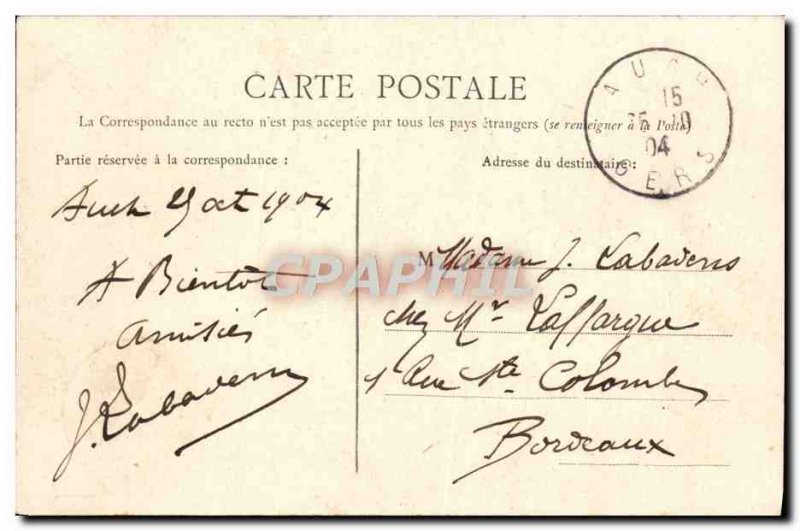 CARTE POSTALE
La Correspondance au recto n'est pas acceptée par tous les pays étrangers (se renseigner à la Poste)
Partie réservée à la correspondance :
Auch 25 oct 1904
A Bientot
amitiés
J. Labavens
Adresse du destinataire :
M Madame J. Labavens
chez Mr Laffargue
1 Rue Ste Colombe
Bordeaux
AUCH
15
25 -10
04
GERS
CPAPHIL